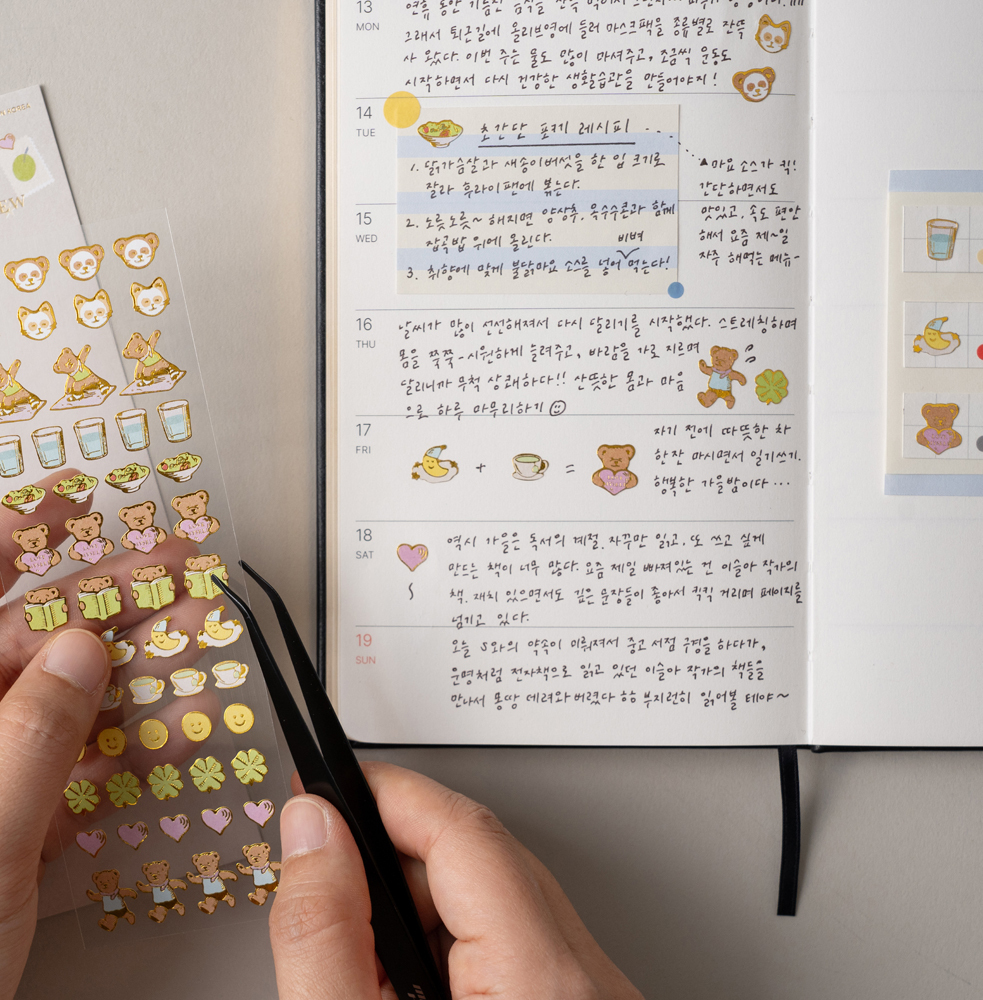 13
MON
그래서 퇴근길에 올리브영에 들러 마스크팩을 종류별로 잔뜩
사 왔다. 이번 주는 물도 많이 마셔주고, 조금씩 운동도
시작하면서 다시 건강한 생활습관을 만들어야지!
14
TUE
초간단 포케 레시피 ...
1. 닭가슴살과 새송이버섯을 한 입 크기로
잘라 후라이팬에 볶는다.
2. 노릇노릇~ 해지면 양상추, 옥수수콘과 함께
잡곡밥 위에 올린다.
비벼
3. 취향에 맞게 불닭마요 소스를 넣어 먹는다!
마요소스가 킥!
간단하면서도
맛있고, 속도 편안
해서 요즘 제~일
자주 해먹는 메뉴-
15
WED
16
THU
날씨가 많이 선선해져서 다시 달리기를 시작했다. 스트레칭하며
몸을 쭉쭉-시원하게 늘려주고, 바람을 가로지르며
달리니까 무척 상쾌하다!! 산뜻한 몸과 마음
으로 하루 마무리하기
17
FRI
+ =
자기 전에 따뜻한 차
한잔 마시면서 일기쓰기.
행복한 가을밤이다...
18
SAT
역시 가을은 독서의 계절. 자꾸만 읽고, 또 쓰고 싶게
만드는 책이 너무 많다. 요즘 제일 빠져있는 건 이슬아 작가의
책. 재치 있으면서도 깊은 문장들이 좋아서 킥킥 거리며 페이지를
넘기고 있다.
19
SUN
오늘 S와의 약속이 미뤄져서 중고서점 구경을 하다가,
운명처럼 전자책으로 읽고 있던 이슬아 작가의 책들을
만나서 몽땅 데려와버렸다 하하 부지런히 읽어볼 테야~